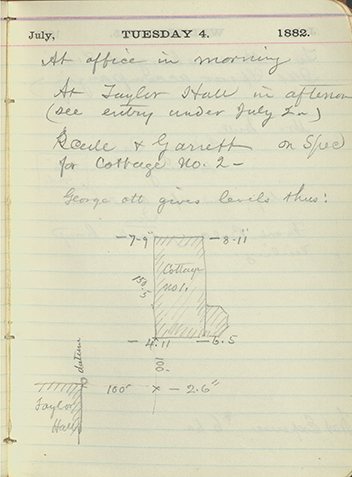 July, TUESDAY 4. 1882.
At office in morning
At Taylor Hall in afternoon
(see entry under July 2nd)
& Garrett on Spec
for Cottage No. 2 -
George ott gives levels thus:
- 7-9" - 3.11"
Cottage
no 1.
- 4.11 - 6.5
datum
100
100' x - 2.6"
Taylor
Hall